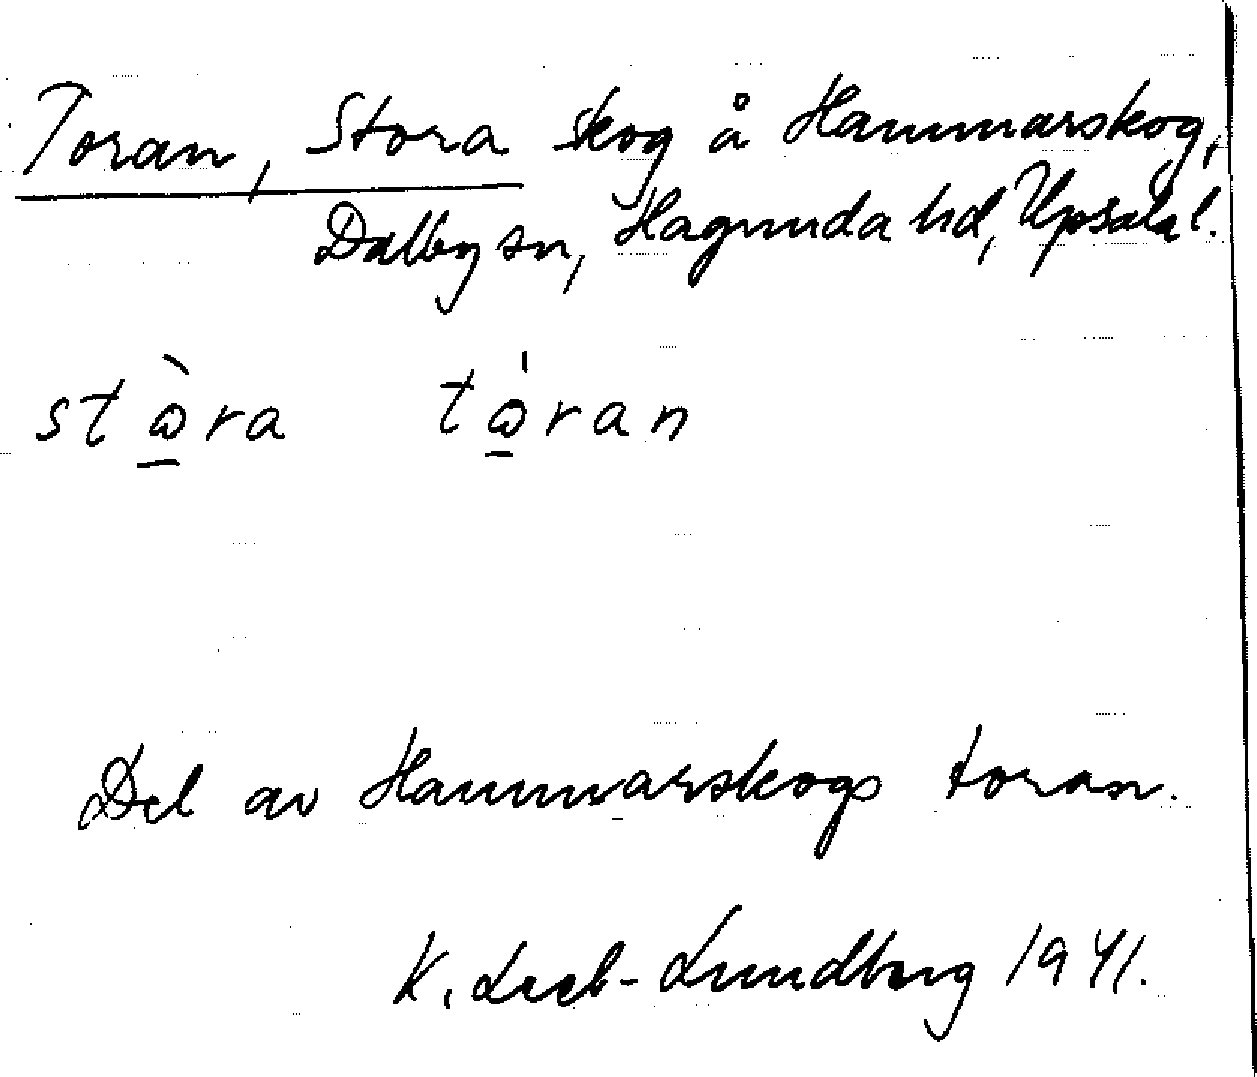 Toran, Stora skog å Hammarskog,
Dalby sn, Hagunda hd, Upsala l.
stὼ̲ra tώ̲ran
Del av Hammarskogs toran.
K. Leeb-Lundberg 1941.